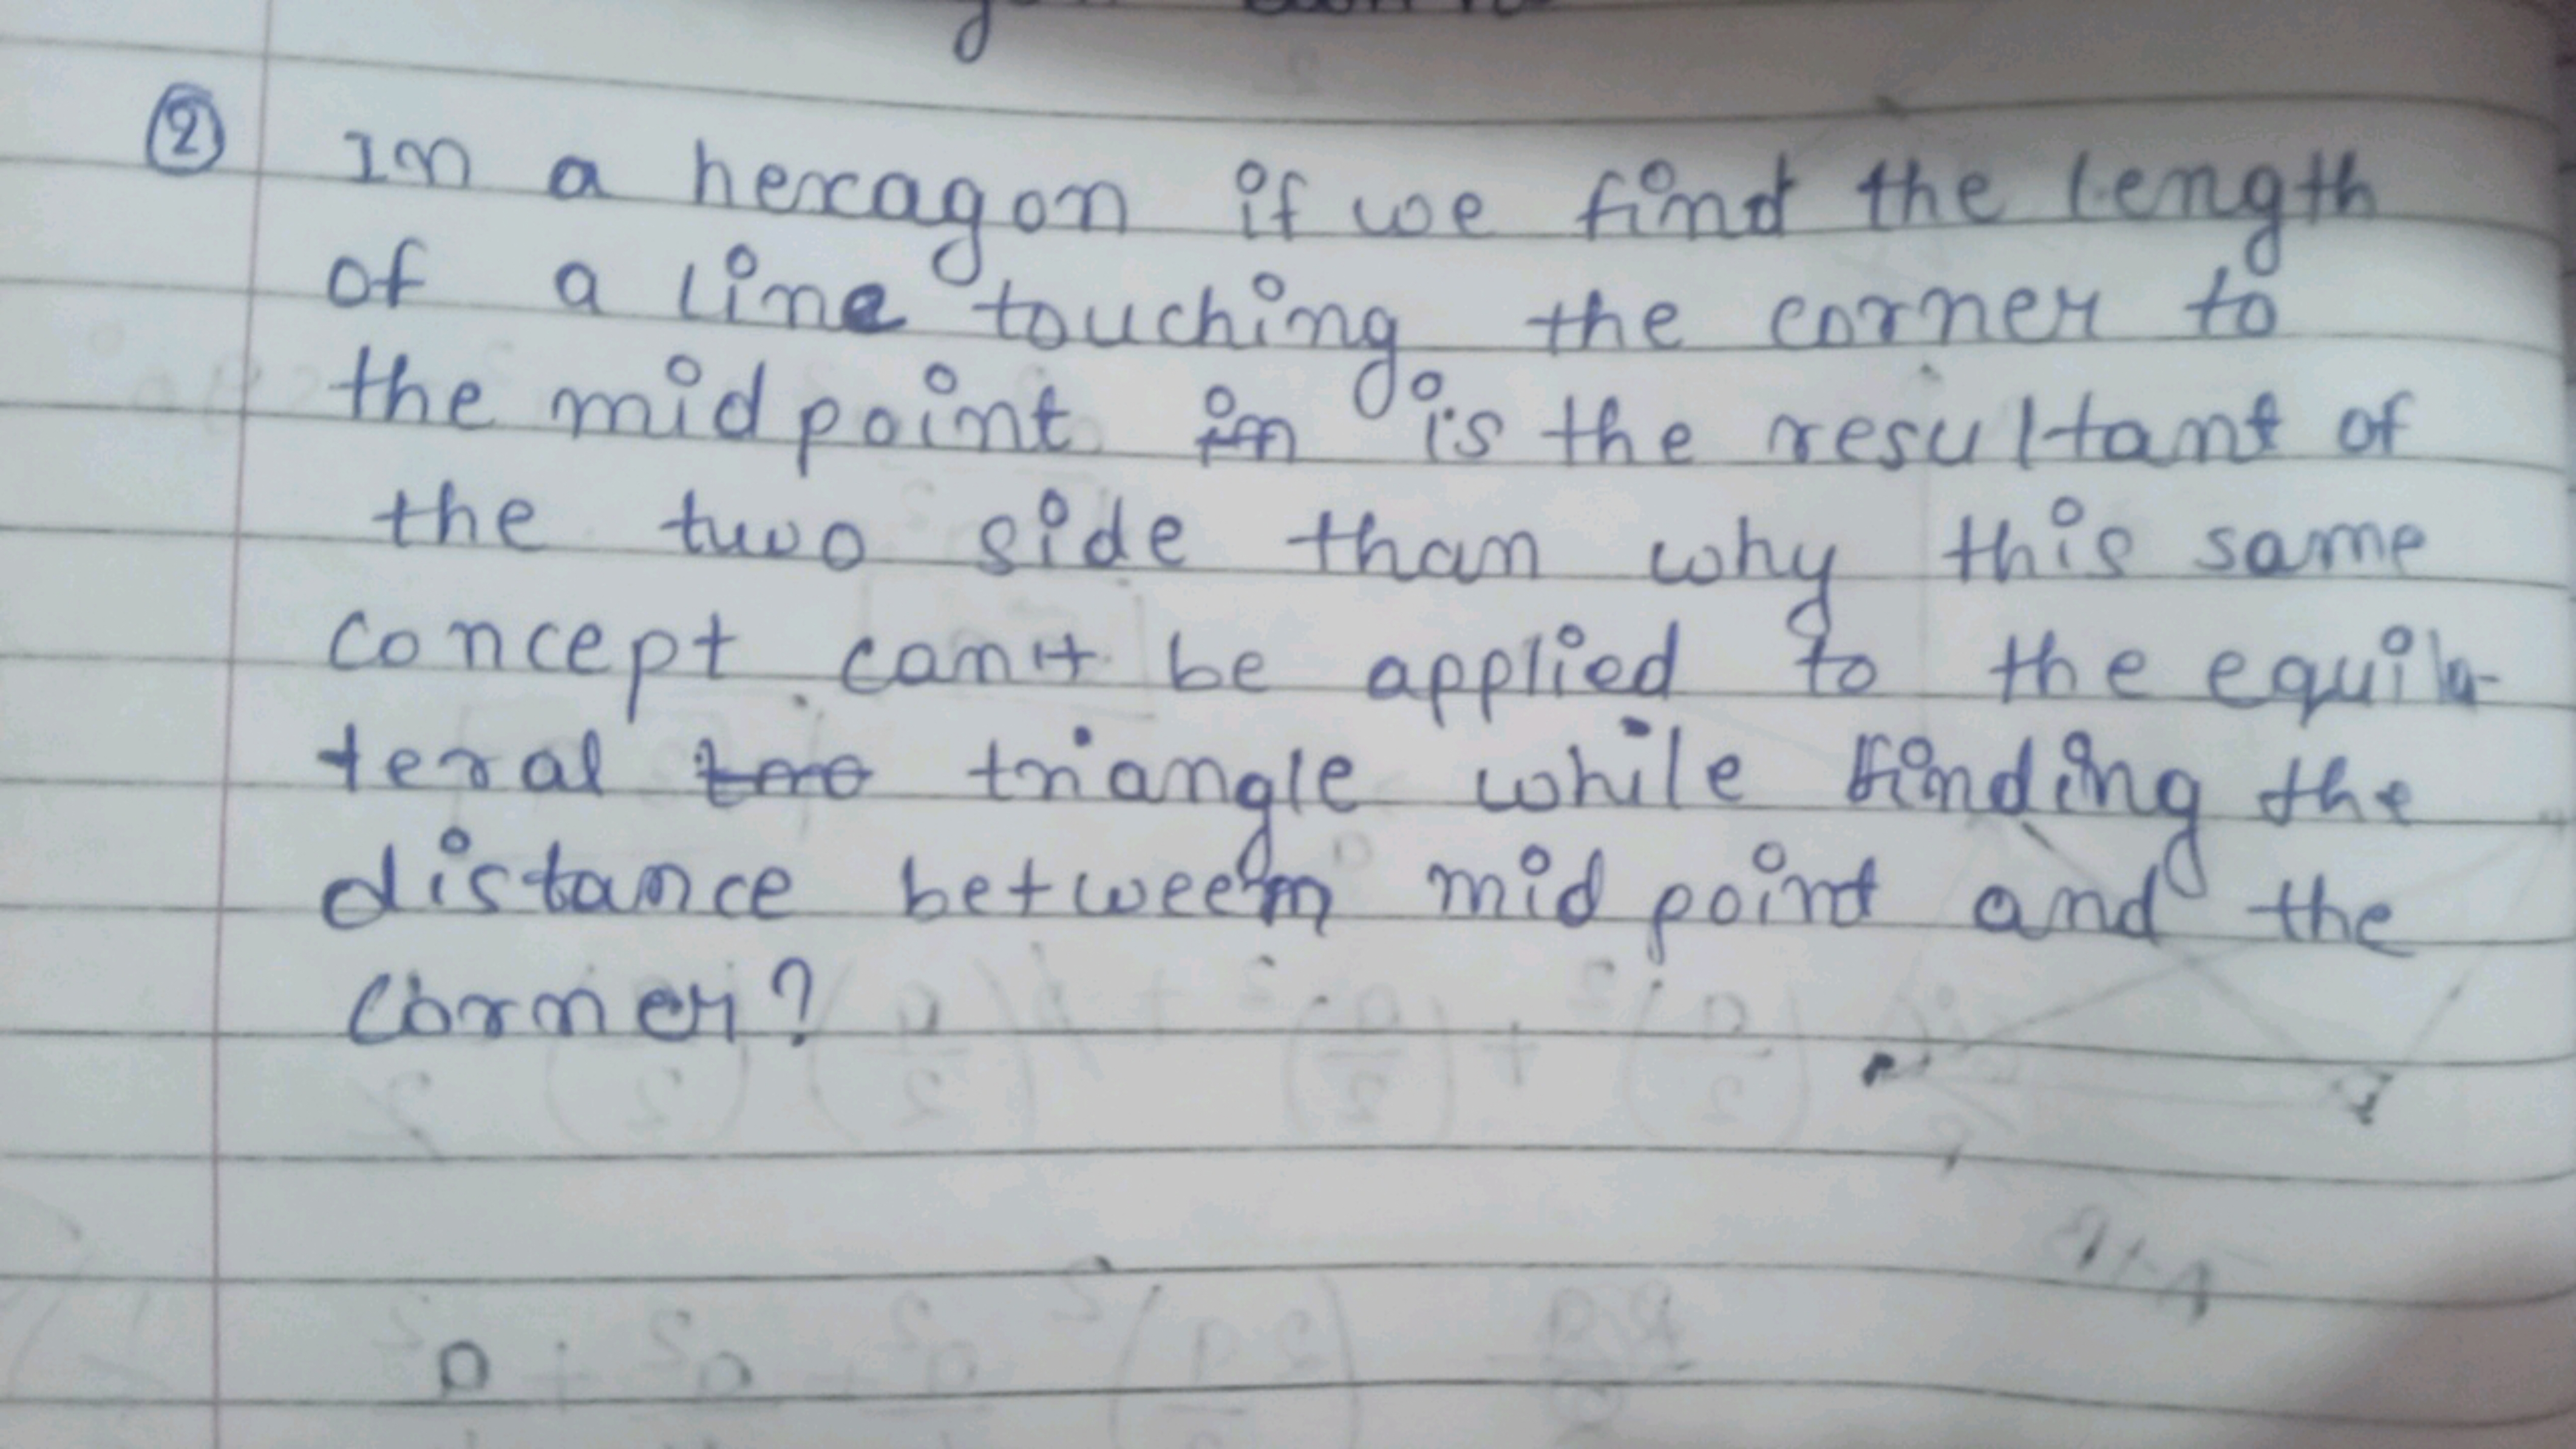 ② In a hexagon if we find the length
of a line touching the corner to
the midpoint in is the resultant of
the two side than why this same
concept can't be applied to the equila-
teral triangle while finding the
distance between mid point and the
corner?